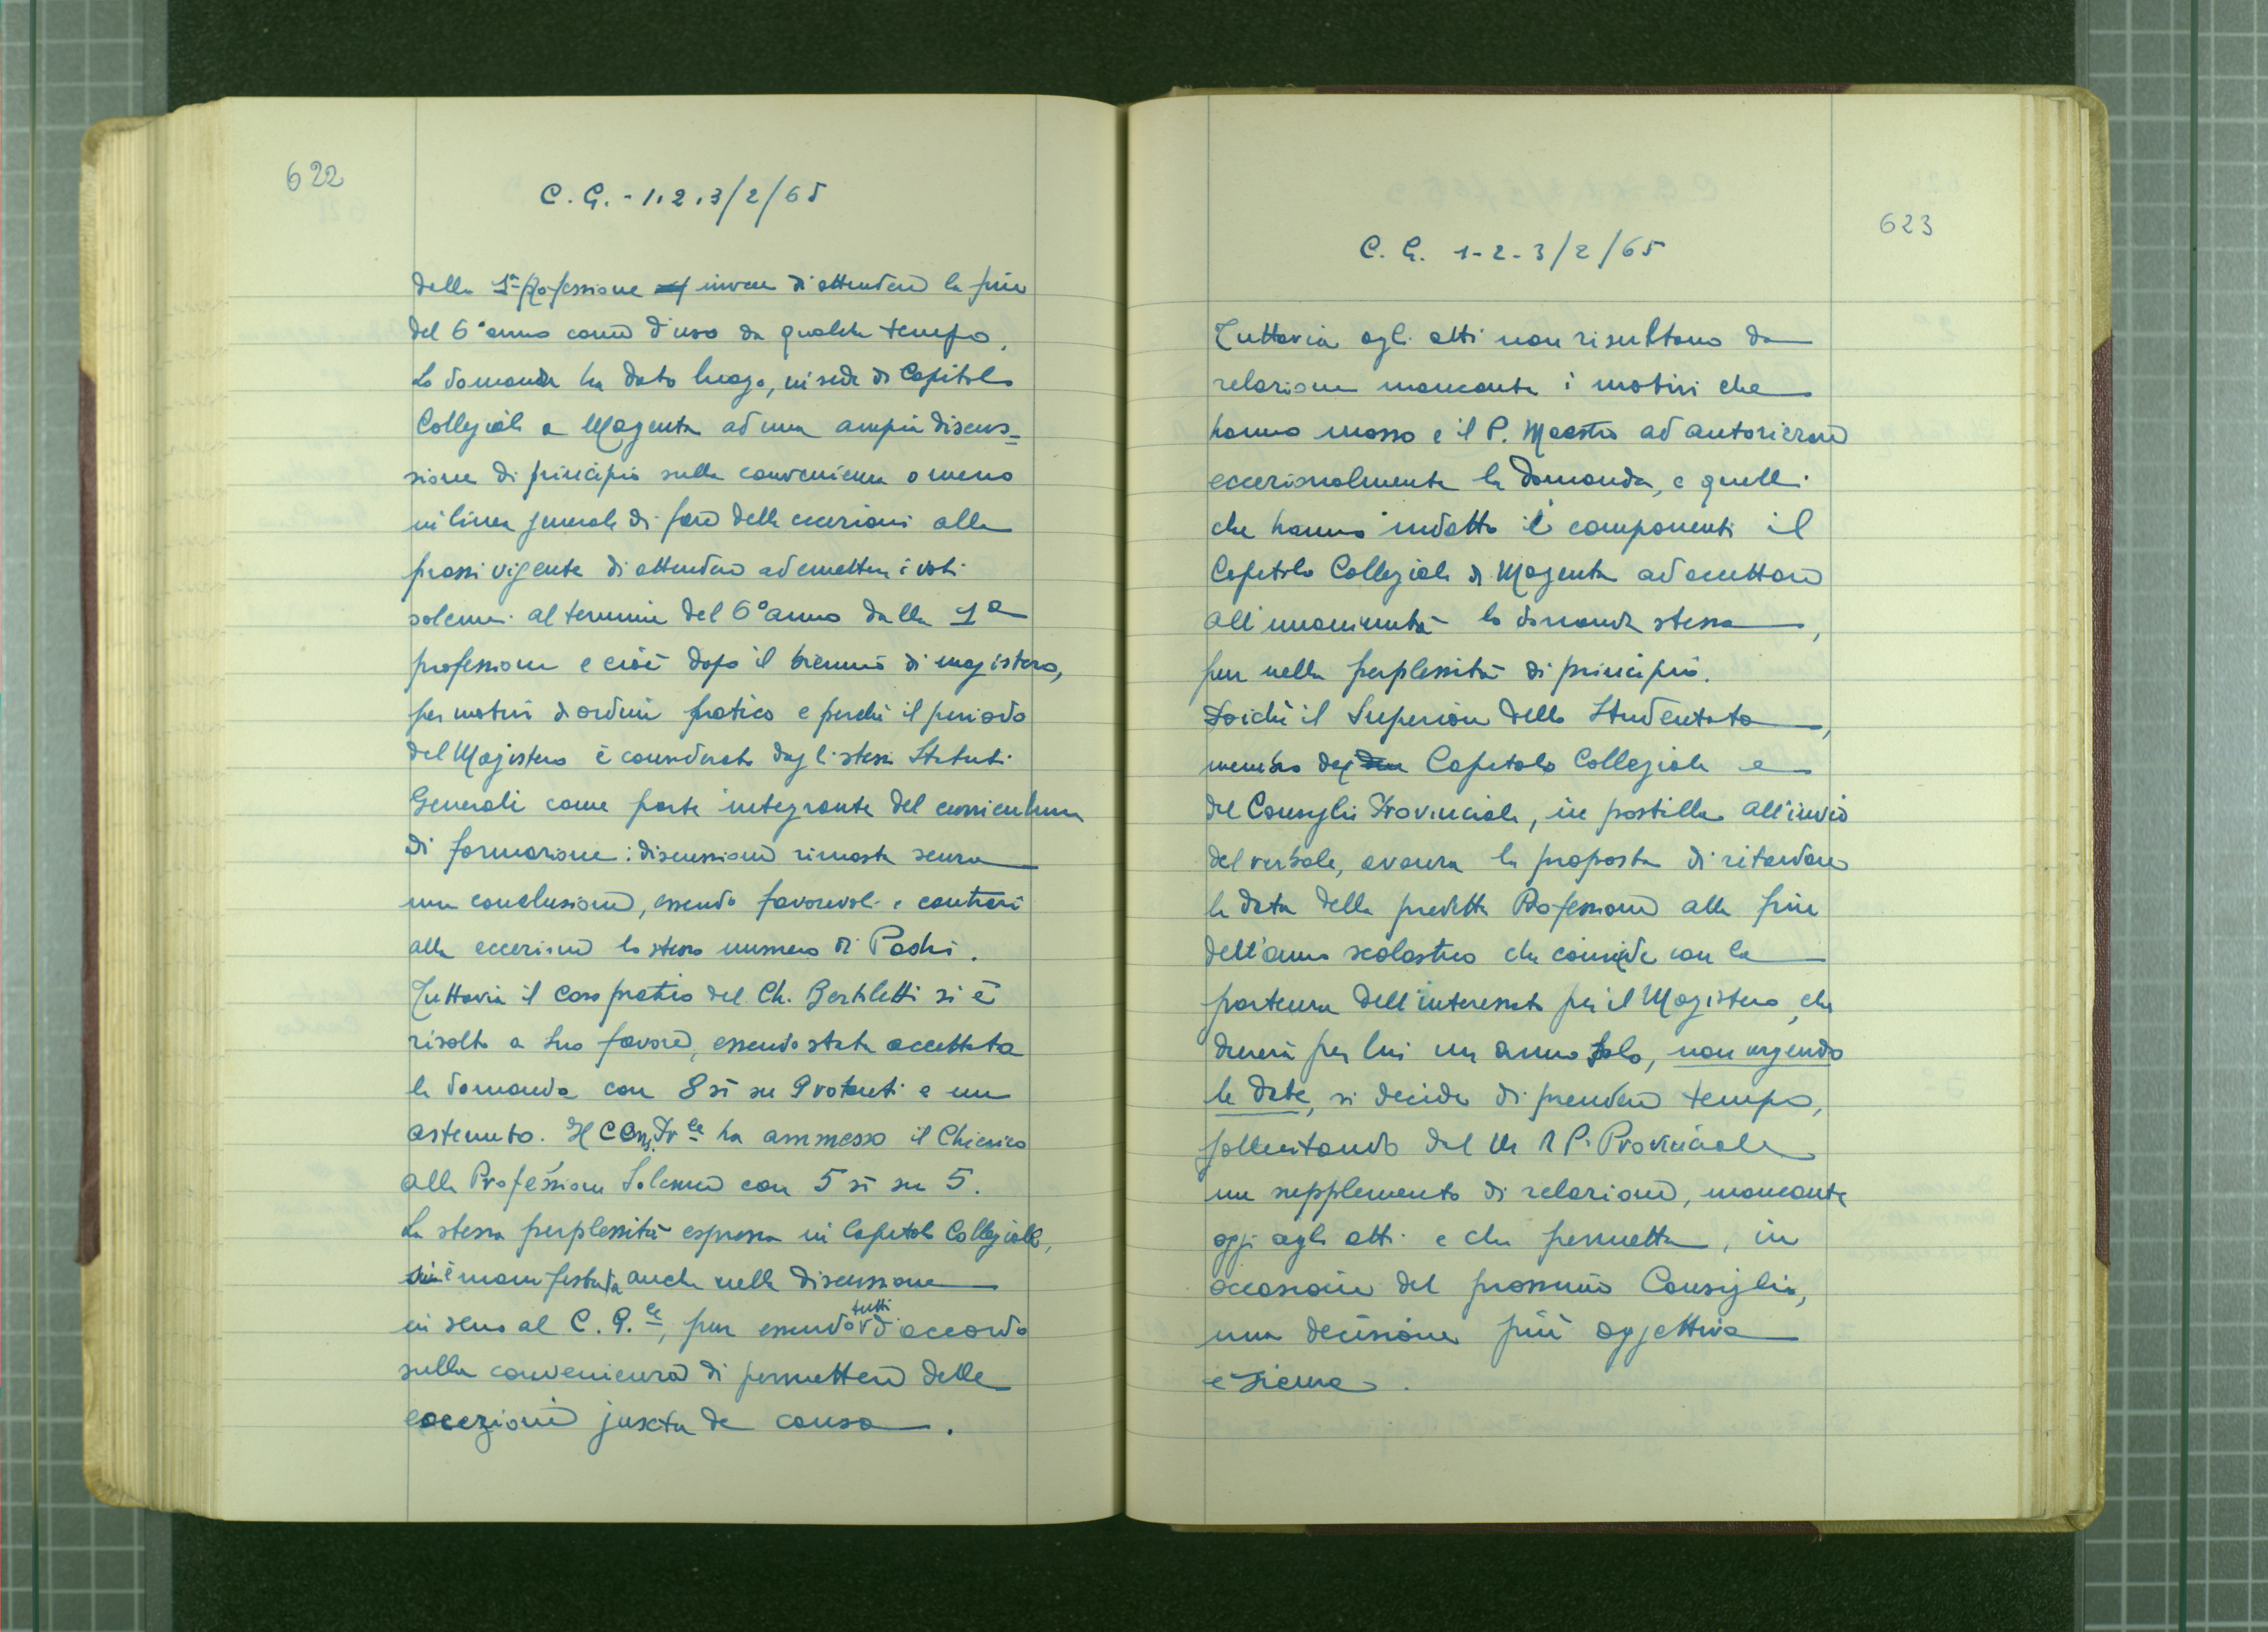 622
C. G. - 1.2.3/2/65
dalla 1ª Professione invece di attendere la fine
del 6° anno come d'uso da qualche tempo.
La domanda ha dato luogo, in sede di Capitolo
Collegiale a Magenta ad una ampia discus=
sione di principio sulla convenienza o meno
in linea generale di fare delle eccezioni alla
prassi vigente di attendere ad emettere i voti
solenni al termine del 6° anno dalla 1ª
professione e cioè dopo il biennio di magistero,
per motivi di ordine pratico e perchè il periodo
del Magistero è considerato dagli stessi Statuti
Generali come parte integrante del curriculum
di formazione: discussione rimasta senza
una conclusione, essendo favorevoli e contrari
alla eccezione lo stesso numero di Padri.
Tuttavia il caso pratico del Ch. Bertiletti si è
risolto a suo favore, essendo stata accettata
la domanda con 8 sì su 9 votanti e un
astenuto. Il C Cons. Prle ha ammesso il Chierico
alla Professione Solenne con 5 sì su 5.
La stessa perplessità espressa in Capitolo Collegiale,
si è manifestata anche nella discussione
in seno al C. G.le, pur essendo tutti d'accordo
sulla convenienza di permettere delle
eccezioni juxta de causa.
623
C. G. 1-2-3/2/65
Tuttavia agli atti non risultano da
relazione mancante i motivi che
hanno mosso e il P. Maestro ad autorizzare
eccezionalmente la domanda, e quelli
che hanno indotto i componenti il
Capitolo Collegiale di Magenta ad accettare
all'unanimità la domanda stessa,
pur nella perplessità di principio.
Poichè il Superiore dello Studentato,
membro del Capitolo Collegiale e
del Consiglio Provinciale, in postilla all'invio
del verbale, avanza la proposta di ritardare
la data della predetta Professione alla fine
dell'anno scolastico che coincide con la
partenza dell'interessato per il Magistero, che
durerà per lui un anno solo, non urgendo
le date, si decide di prendere tempo,
sollecitando dal M R P. Provinciale
un supplemento di relazione, mancante
oggi agli atti e che permetta, in
occasione del prossimo Consiglio,
una decisione più oggettiva
e sicura.